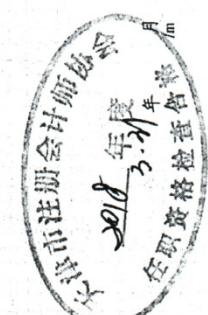 天津市注册会计师协会
2018年度
3.21
任职资格检查合格
年
月
日